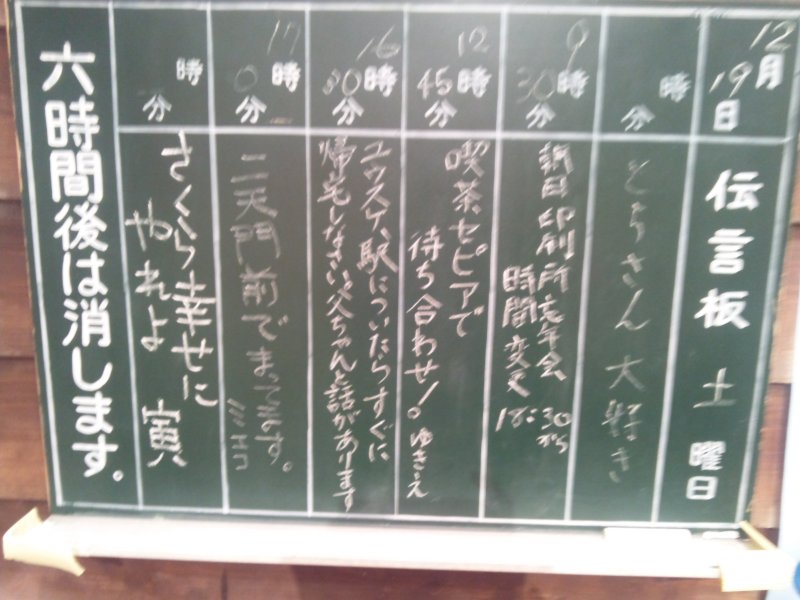 12月19日 伝言板 土曜日
時 分 とらさん大好き
9時30分 朝日印刷所忘年会
時間変更 18:30から
12時45分 喫茶セピアで
待ち合わせ!。ゆきえ
16時30分 ユウスケ、駅についたらすぐに
帰宅しなさい。父ちゃんと話があります
17時0分 二天門前でまってます。ミエコ
時 分 さくら幸せに
やれよ 寅
六時間後は消します。